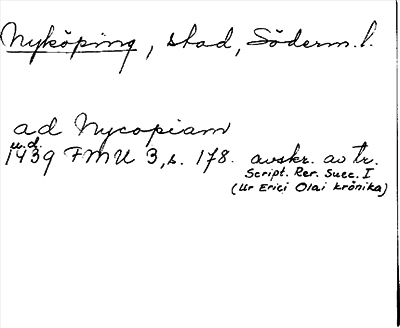 Nyköping, stad, Söderm. l.
ad Nycopiam
u.d.
1439 FMU 3, s. 178. avskr. av tr.
Script. Rer. Suec. I
(Ur Erici Olai krönika)